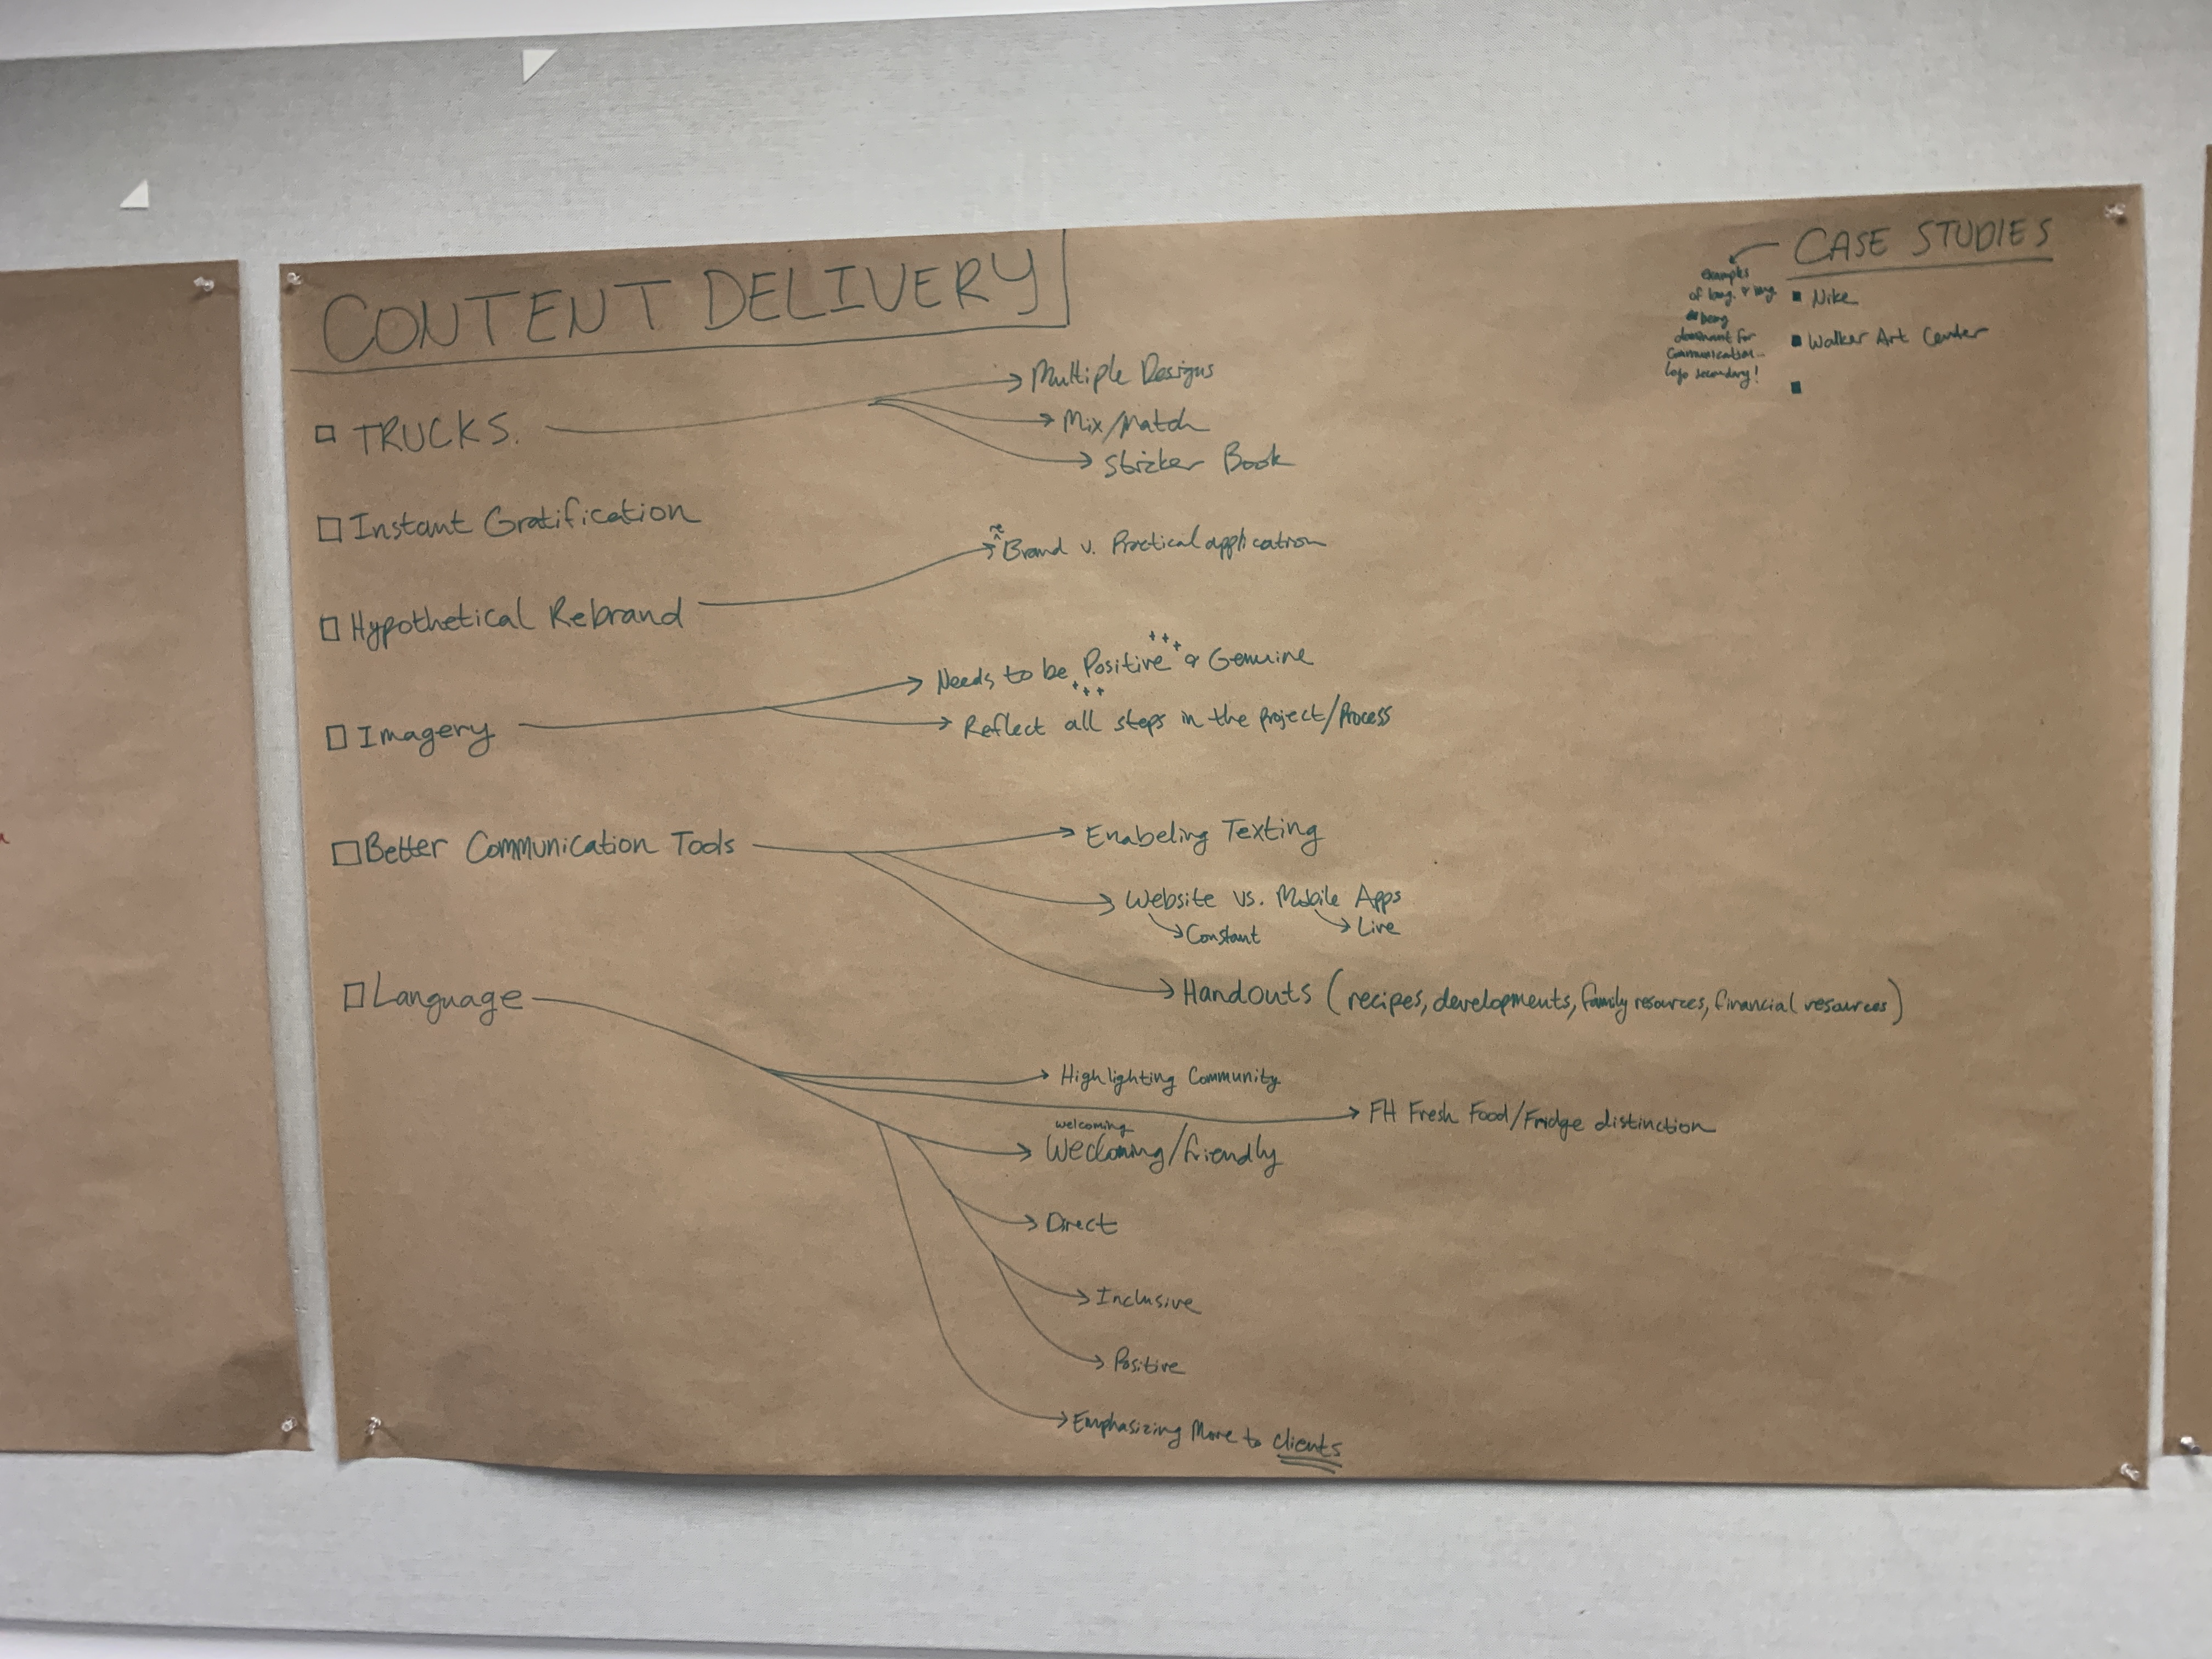 CONTENT DELIVERY
CASE STUDIES
examples
of lang. &
being
dominant for
communication...
logo secondary!
Nike
Walker Art Center
TRUCKS.
Multiple Designs
Mix/Match
Stricker Book
Instant Gratification
Hypothetical Rebrand
re
^
Brand v. Practical application
Imagery
+++
Needs to be Positive & Genuine
+++
Reflect all steps in the project/Process
Better Communication Tools
Enabeling Texting
Website vs. Mobile Apps
Constant
Live
Handouts (recipes, developments, family resources, financial resources)
Language
Highlighting Community
FH Fresh Food/Fridge distinction
welcoming
Wecloming/friendly
Direct
Inclusive
Positive
Emphasizing More to clients